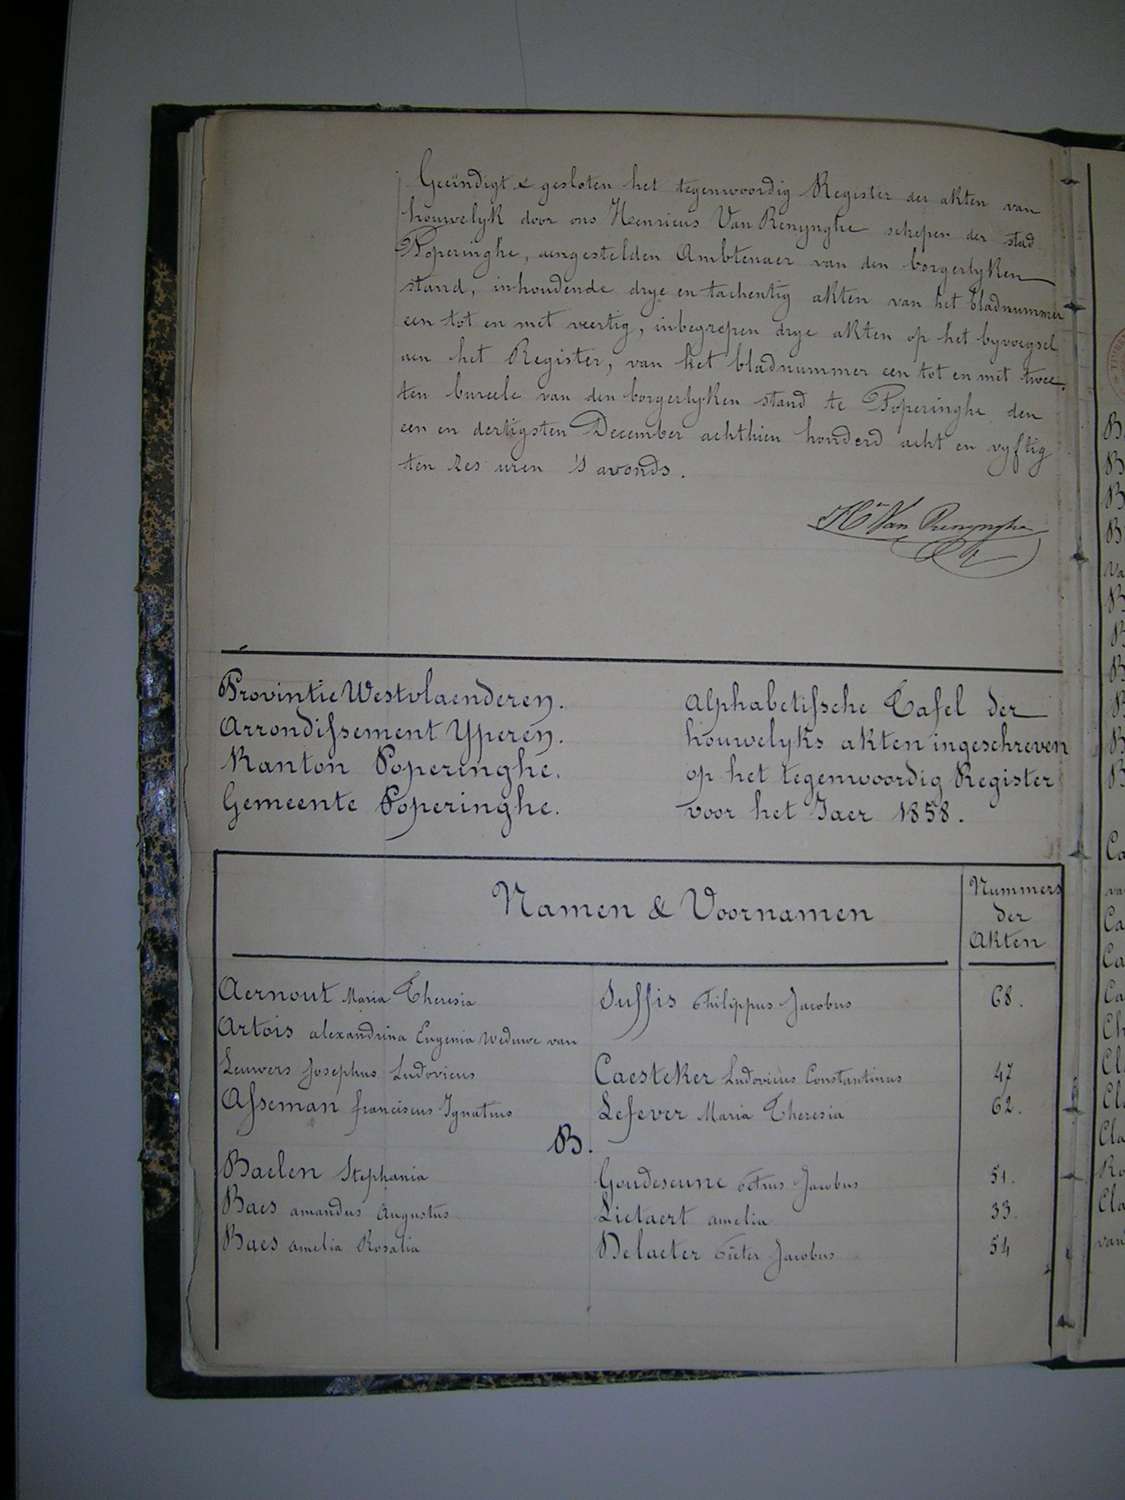 Geëindigt & gesloten het tegenwoordig Register der akten van
houwelyk door ons Henricus Van Renynghe schepen der stad
Poperinghe, aengestelden Ambtenaer van den borgerlyken
stand, inhoudende drye en tachentig akten van het bladnummer
een tot en met veertig, inbegrepen drye akten op het byvoegsel
aen het Register, van het bladnummer een tot en met twee.
ten bureele van den borgerlyken stand te Poperinghe den
een en dertigsten December achthien honderd acht en vyftig
ten zes uren 's avonds.
Hri Van Renynghe
Provintie Westvlaenderen.
Arrondissement Yperen.
Kanton Poperinghe.
Gemeente Poperinghe.
Alphabetissche Tafel der
houwelyks akten ingeschreven
op het tegenwoordig Register
voor het Jaer 1858.
Namen & Voornamen
Nummers
der
Akten
Aernout Maria Theresia Juffis Philippus Jacobus 68.
Artois alexandrina Eugenia Weduwe van
Leuwers Josephus Ludovicus Caesteker Ludovicus Constantinus 47
Asseman franciscus Ignatius Lefever Maria Theresia 62.
B.
Baelen Stephania Goudeseune Petrus Jacobus 51.
Baes amandus Augustus Lietaert amelia 33.
Baes amelia Rosalia Delaeter Pieter Jacobus 54